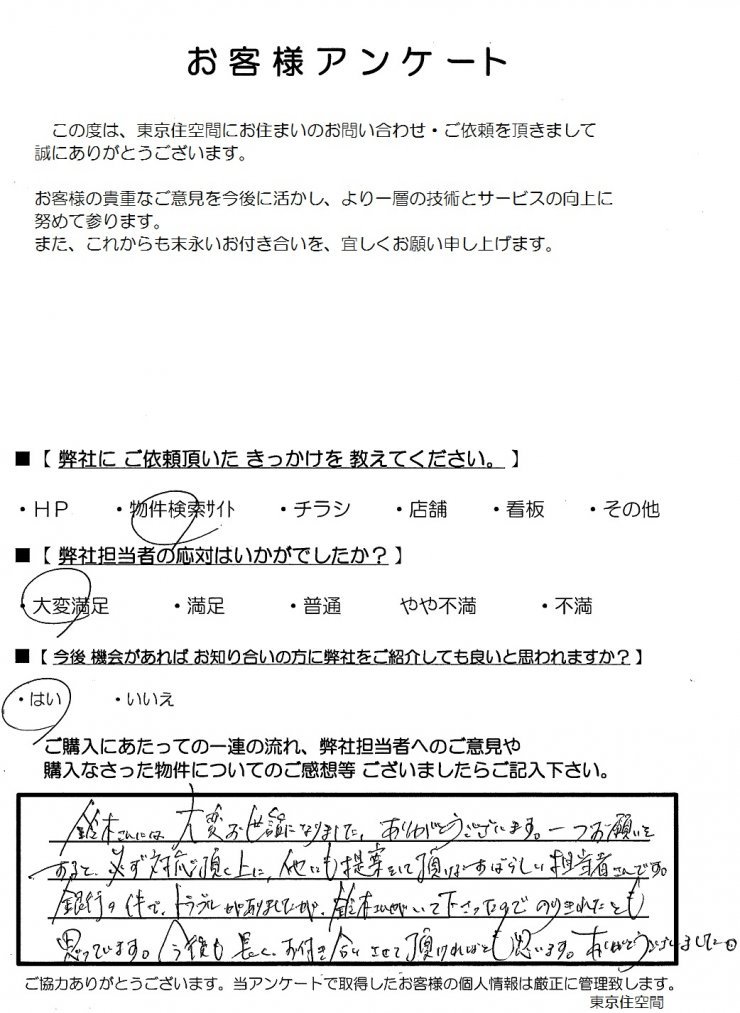 お客様アンケート
この度は、東京住空間にお住まいのお問い合わせ・ご依頼を頂きまして
誠にありがとうございます。
お客様の貴重なご意見を今後に活かし、より一層の技術とサービスの向上に
努めて参ります。
また、これからも末永いお付き合いを、宜しくお願い申し上げます。
■【 弊社に ご依頼頂いた きっかけを 教えてください。 】
・ＨＰ ・物件検索ｻｲﾄ ・チラシ ・店舗 ・看板 ・その他
■【 弊社担当者の応対はいかがでしたか？ 】
・大変満足 ・満足 ・普通 やや不満 ・不満
■【 今後 機会があれば お知り合いの方に弊社をご紹介しても良いと思われますか？ 】
・はい ・いいえ
ご購入にあたっての一連の流れ、弊社担当者へのご意見や
購入なさった物件についてのご感想等 ございましたらご記入下さい。
鈴木さんには大変お世話になりました。ありがとうございます。一つお願いを
すると、必ず対応頂く上に、他にも提案をして頂けるすばらしい担当者さんです。
銀行の件で、トラブルがありましたが、鈴木さんがいて下さったのでのりきれたとも
思っています。今後も長く、お付き合いさせて頂ければとも思います。ありがとうございました。
ご協力ありがとうございます。当アンケートで取得したお客様の個人情報は厳正に管理致します。
東京住空間